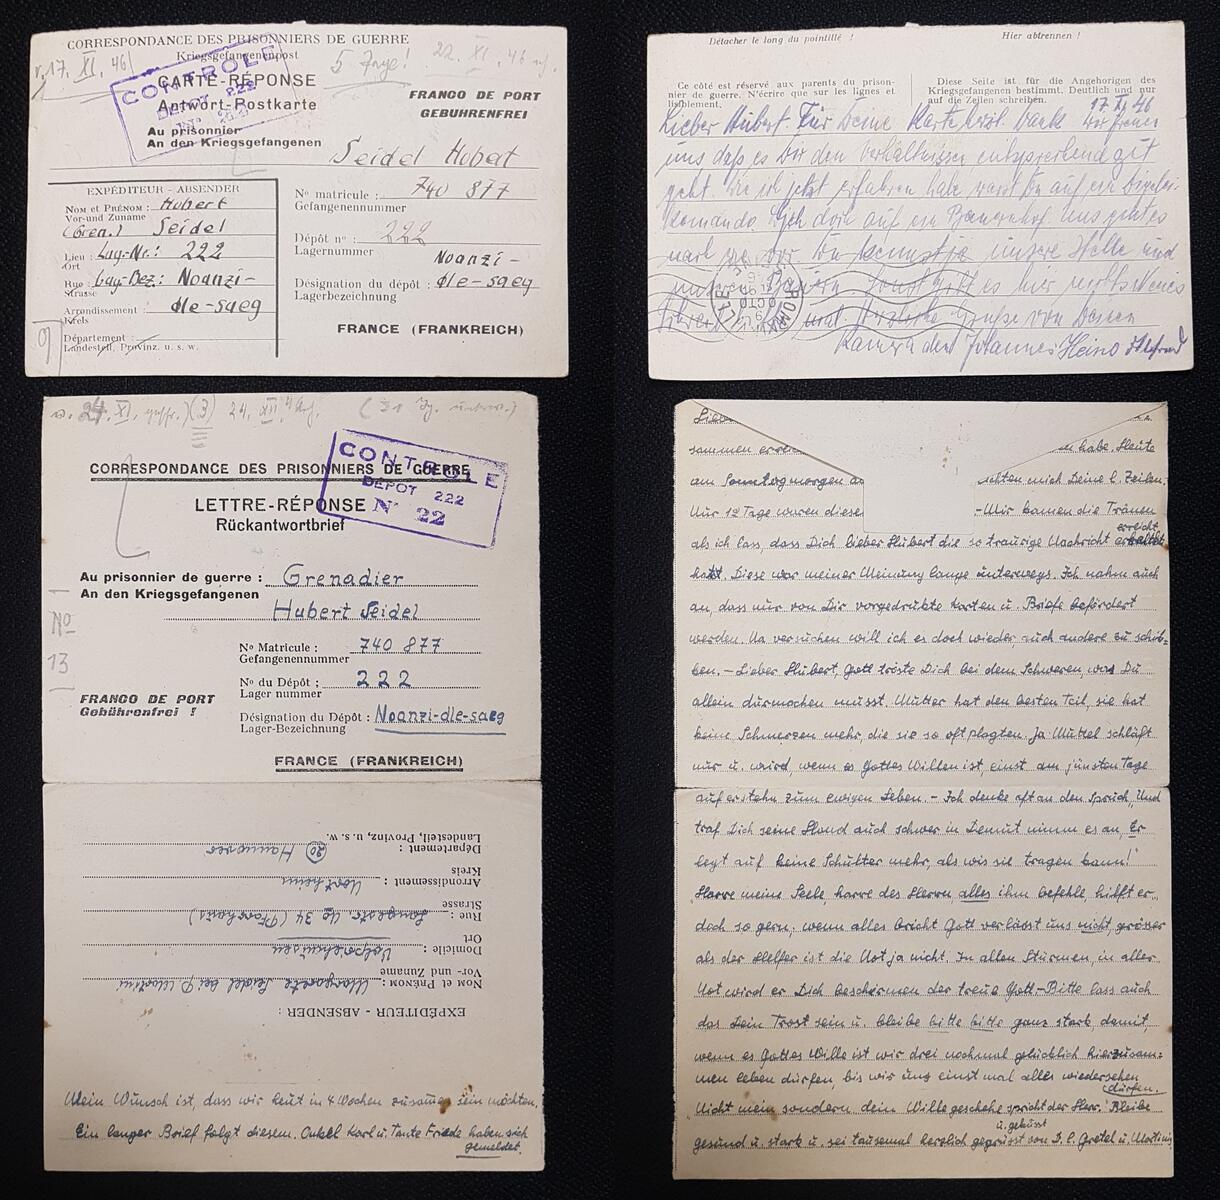 CORRESPONDANCE DES PRISONNIERS DE GUERRE
Kriegsgefangenenpost
v. 17. XI. 46
5 Tage!
22. XI. 46
CONTROLE
DEPOT 222
CARTE-RÉPONSE
Antwort-Postkarte
FRANCO DE PORT
GEBÜHRENFREI
Au prisonnier
An den Kriegsgefangenen
Seidel Hubert
EXPÉDITEUR - ABSENDER
Nom et Prénom : Hubert
Vor-und Zuname
(Gren.) Seidel
Lieu : Lag-Nr.: 222
Ort
Rue : Lag-Bez: Noanzi-
Strasse
dle-saeg
Arrondissement :
Kreis
Département :
Landesteil, Provinz. u. s. w.
No matricule : 740 877
Gefangenennummer
Dépôt no : 222
Lagernummer
Noanzi-
Désignation du dépôt : dle-saeg
Lagerbezeichnung
FRANCE (FRANKREICH)
Détacher le long du pointillé !
Hier abtrennen !
Ce côté est réservé aux parents du prison-
nier de guerre. N'écrire que sur les lignes et
lisiblement.
Diese Seite ist für die Angehörigen des
Kriegsgefangenen bestimmt. Deutlich und nur
auf die Zeilen schreiben.
17. XI 46
Lieber Hubert. Für Deine Karte herzl. Dank Wir freuen
uns daß es Dir den Verhältnissen entsprechend gut
geht. Wie ich jetzt erfahren habe warst Du auf ein
Komando. Ich doch auf ein Bauernhof uns geht es
noch so. Du kennst ja unsere Helle und
Sonst gibt es hier nichts Neues
Herzliche Grüße von Deinen
Kameraden Johannes Heino
24. XI.
(3) 24. XII. 4
CORRESPONDANCE DES PRISONNIERS DE GUERRE
CONTROLE
DEPOT 222
No 22
LETTRE-RÉPONSE
Rückantwortbrief
Au prisonnier de guerre : Grenadier
An den Kriegsgefangenen
Hubert Seidel
No Matricule : 740 877
Gefangenennummer
No
13
No du Dépôt : 222
Lager nummer
FRANCO DE PORT
Gebührenfrei !
Désignation du Dépôt : Noanzi-dle-saeg
Lager-Bezeichnung
FRANCE (FRANKREICH)
EXPÉDITEUR - ABSENDER :
Nom et Prénom : Margarete Seidel bei P. Martini
Vor- und Zuname
Domicile : Volpriehausen
Ort
Rue : Langestr. No 34 (Pfarrhaus)
Strasse
Arrondissement : Northeim
Kreis
Département : (20) Hannover
Landesteil, Provinz, u. s. w.
Mein Wunsch ist, dass wir heut in 4 Wochen zusammen sein möchten.
Ein langer Brief folgt diesem. Onkel Karl u. Tante Friede haben sich
gemeldet.
sammen habe. Heute
am Sonntagmorgen Deine l. Zeilen.
Nur 12 Tage waren diese -Mir kamen die Tränen
als ich lass, dass Dich lieber Hubert die so traurige Nachricht erreicht
hat. Diese war meiner Meinung lange unterwegs. Ich nahm auch
an, dass nur von Dir vorgedrukte Karten u. Briefe befördert
werden. Na versuchen will ich es doch wieder, auch andere zu schik-
ken. - Lieber Hubert, Gott tröste Dich bei dem Schweren, was Du
allein durmachen musst. Mutter hat den besten Teil, sie hat
keine Schmerzen mehr, die sie so oft plagten. Ja Muttel schläft
nur u. wird, wenn es Gottes Willen ist, einst am jünsten Tage
auferstehn zum ewigen Leben. - Ich denke oft an den Spruch, "Und
traf Dich seine Hand auch schwer in Demut nimm es an, Er
legt auf keine Schulter mehr, als wis sie tragen kann!"
Harre meine Seele, harre des Herrn alles ihm befehle, hilft er
doch so gern. wenn alles bricht Gott verlässt uns nicht, grösser
als der Helfer ist die Not ja nicht. In allen Stürmen, in aller
Not wird er Dich beschirmen der treue Gott - Bitte lass auch
das Dein Trost sein u. bleibe bitte bitte ganz stark, damit
wenn es Gottes Wille ist wir drei nochmal glücklich hierzusam-
men leben dürfen, bis wir uns einst mal alles wiedersehen
dürfen.
"Nicht mein sondern dein Wille geschehe spricht der Herr." Bleibe
gesund u. stark u. sei tausemal herzlich gegrüsst u. geküsst von D. l. Gretel u. Martini